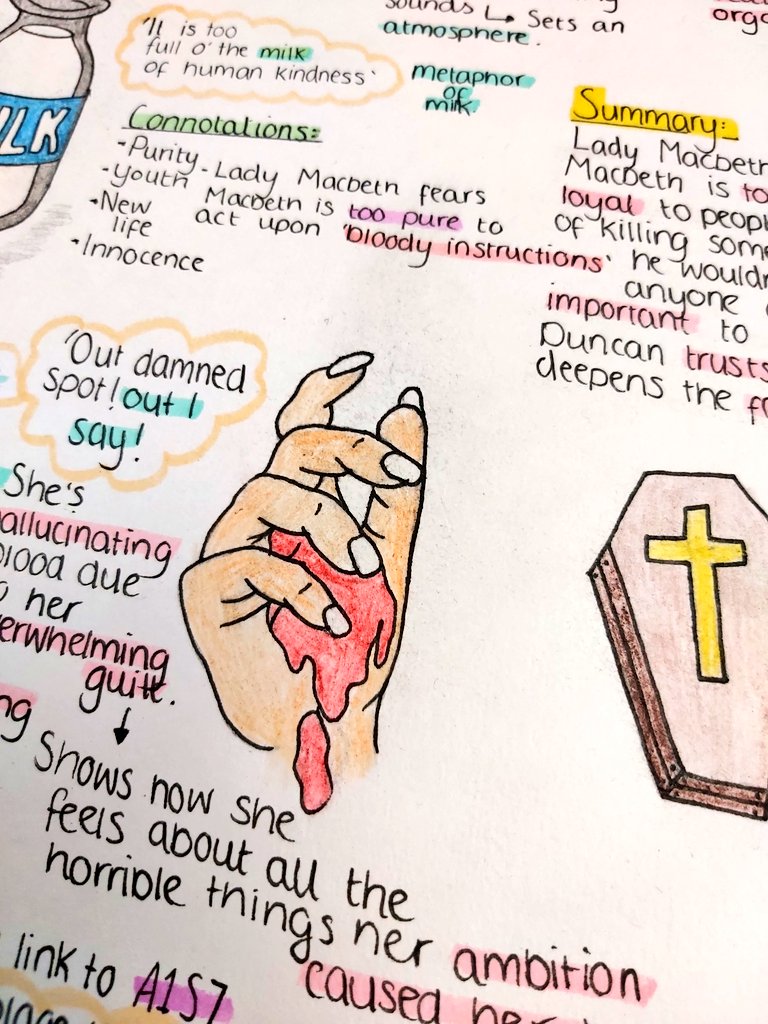 sounds ↳ Sets an
atmosphere.
'It is too
full o' the milk
of human kindness'
metaphor
of
milk
MILK
Connotations:
-Purity
-Youth
•New
life
•Innocence
-Lady Macbeth fears
Macbeth is too pure to
act upon 'bloody instructions'
Summary:
Lady Macbeth
Macbeth is
loyal to
of killing
he
anyone
important to
Duncan trusts
deepens the
'Out damned
spot! out I
say!
She's
hallucinating
blood due
to her
overwhelming
guilt.
↓
Shows how she
feels about all the
horrible things her ambition
caused her
link to A1S7